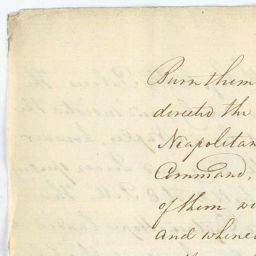 Burn them
directed the
Neapolitan
Command,
of them wi
and whene